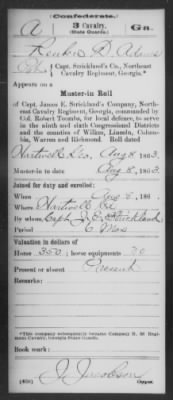 (Confederate.)
A 3 Cavalry. Ga.
(State Guards.)
Reuben D. Adams
Pvt., Capt. Strickland's Co., Northeast
Cavalry Regiment, Georgia.*
Appears on a
Muster-in Roll
of Capt. James E. Strickland's Company, North-
east Cavalry Regiment, Georgia, commanded by
Col. Robert Toombs, for local defense, to serve
in the ninth and sixth Congressional Districts
and the counties of Wilkes, Lincoln, Columbia,
Warren and Richmond. Roll dated
Hartwell Ga., Aug 8, 1863.
Muster-in to date Aug 8, 1863.
Joined for duty and enrolled:
When Aug 8, 186 .
Where Hartwell Ga
By whom Capt J. E. Strickland
Period 6 Mos
Valuation in dollars of
Horse 350; horse equipments
Present or absent Present
Remarks:
*This company subsequently became Company B, 3d Regi-
ment Cavalry, Georgia State Guards.
Book mark:
J. Jacobson
Copyist.